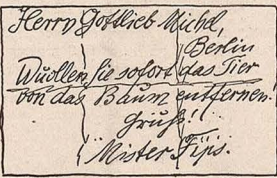 Herrn Gottlieb Michel,
Berlin
Wuollen Sie sofort das Tier
von das Baum entfernen!
Gruß!
Mister Fips.